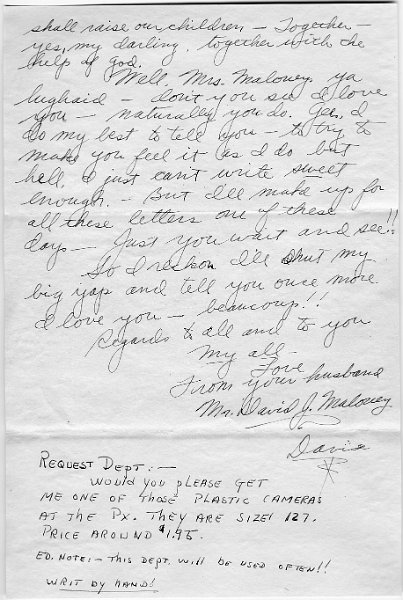 shall raise our children – Together –
yes, my darling, together with the
help of god.
Well, Mrs. Maloney, ya
lughaid – don't you see I love
you – naturally you do. Gee, I
do my best to tell you – to try to
make you feel it as I do but
hell, I just can't write sweet
enough. – But I'll make up for
all these letters one of these
days – Just you wait and see!!
So I reckon I'll shut my
big yap and tell you once more
I love you – beaucoup!!
Regards to all and to you
my all –
Love
From your husband
Mr. David J. Maloney
David
REQUEST DEPT:–
WOULD YOU PLEASE GET
ME ONE OF THOSE PLASTIC CAMERAS
AT THE PX. THEY ARE SIZE 127.
PRICE AROUND $1.95.
ED. NOTE:– THIS DEPT. WILL BE USED OFTEN!!
WRIT BY HAND!